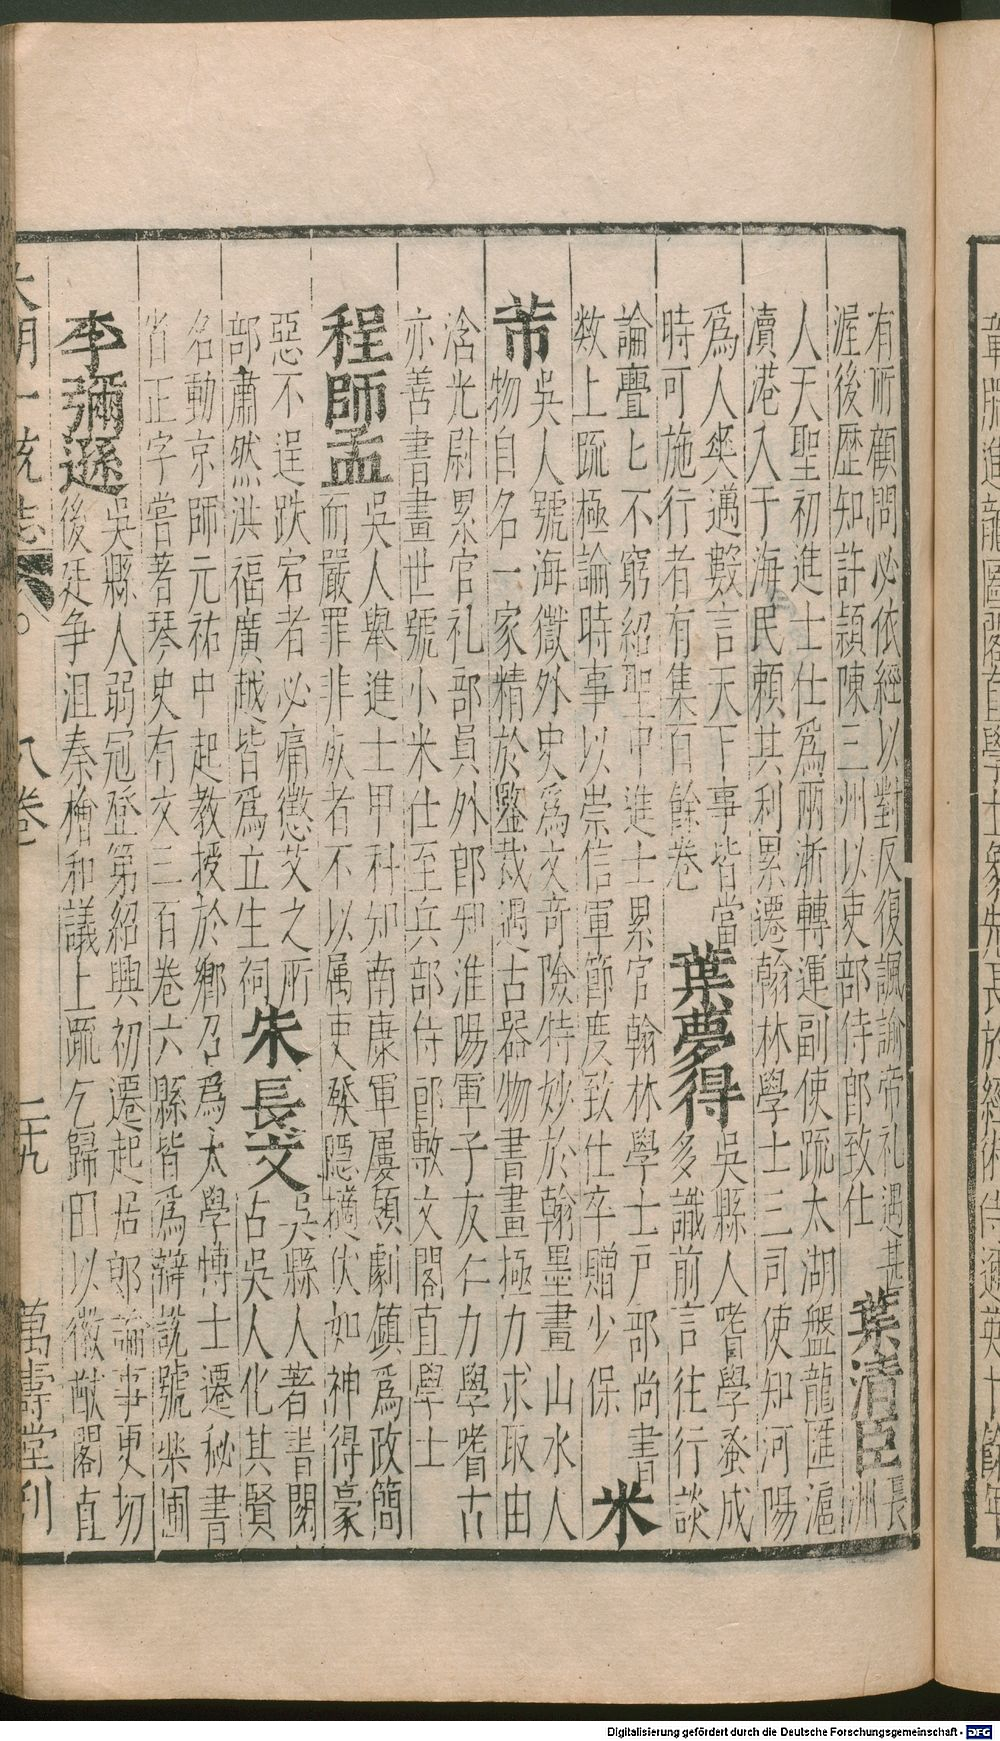 有所顧問必依經以對反復諷諭帝礼遇甚
渥後歷知許潁陳三州以吏部侍郎致仕
葉清臣
長
洲
人天聖初進士仕為兩浙轉運副使疏太湖盤龍匯滬
瀆港入于海民頼其利累遷翰林學士三司使知河陽
為人奕邁數言天下事皆當
時可施行者有集百餘卷
葉夢得
吳縣人嗜學蚤成
多識前言往行談
論亹七不窮紹聖中進士累官翰林學士戶部尚書
数上疏極論時事以崇信軍節度致仕卒贈少保
米
芾
吳人號海嶽外史為文奇險特妙於翰墨畫山水人
物自名一家精於鑒裁遇古器物書畫極力求取由
浛光尉累官礼部員外郎知淮陽軍子友仁力學嗜古
亦善書畫世號小米仕至兵部侍郎敷文閣直學士
程師孟
吳人舉進士甲科知南康軍屢領劇鎮為政簡
而嚴罪非死者不以属吏發隱擿伏如神得豪
惡不逞跌宕者必痛懲艾之所
部肅然洪福廣越皆為立生祠
朱長文
吳縣人著書閱
古吳人化其賢
名動京師元祐中起教授於鄉召為太學博士遷秘書
省正字嘗著琴史有文三百卷六縣皆為辯說號樂圃
李彌遜
吳縣人弱冠登第紹興初遷起居郎論事更切
後廷争沮秦檜和議上疏乞歸田以徽猷閣直
大明一統志 八卷 二十九 萬壽堂刋
Digitalisierung gefördert durch die Deutsche Forschungsgemeinschaft - DFG